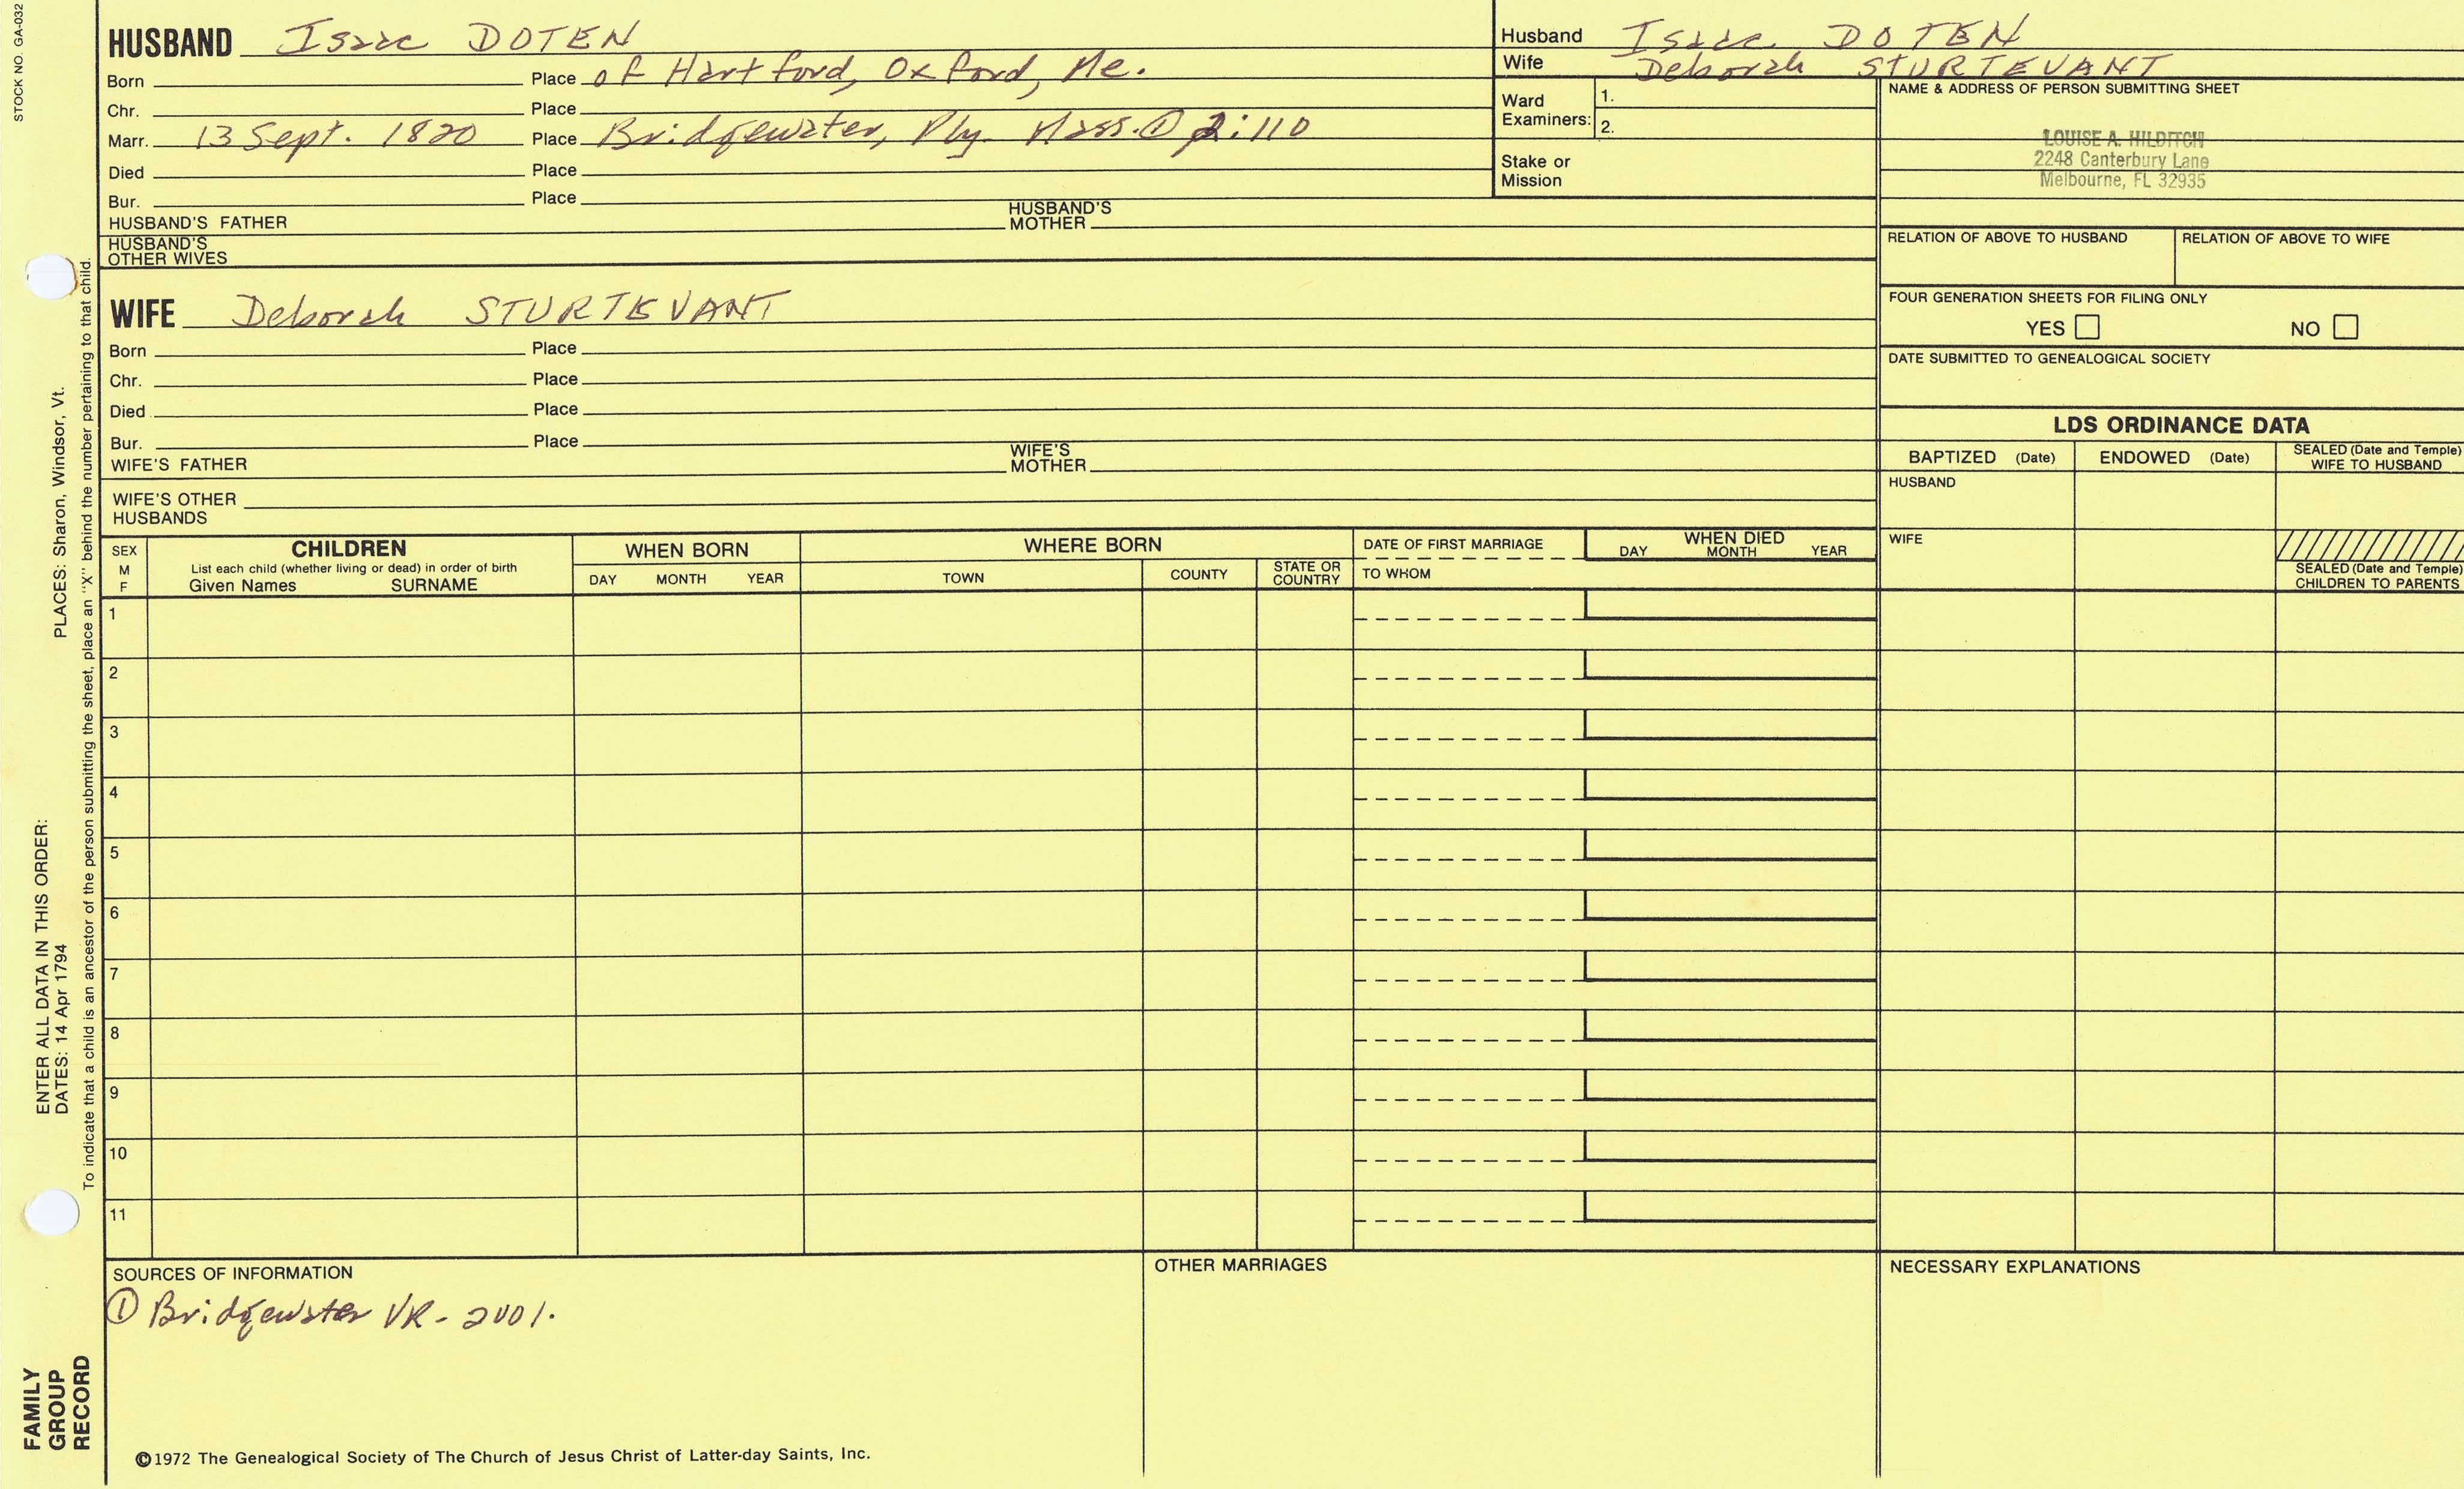 STOCK NO. GA-032
HUSBAND Isaac DOTEN
Born Place of Hartford, Oxford, Me.
Chr. Place
Marr. 13 Sept. 1820 Place Bridgewater, Ply. Mass. ① 2:110
Died Place
Bur. Place
HUSBAND'S FATHER HUSBAND'S MOTHER
HUSBAND'S OTHER WIVES
Husband Isaac DOTEN
Wife Deborah STURTEVANT
Ward Examiners: 1.
2.
Stake or Mission
NAME & ADDRESS OF PERSON SUBMITTING SHEET
LOUISE A. HILDITCH
2248 Canterbury Lane
Melbourne, FL 32935
RELATION OF ABOVE TO HUSBAND RELATION OF ABOVE TO WIFE
FOUR GENERATION SHEETS FOR FILING ONLY
YES NO
DATE SUBMITTED TO GENEALOGICAL SOCIETY
WIFE Deborah STURTEVANT
Born Place
Chr. Place
Died Place
Bur. Place
WIFE'S FATHER WIFE'S MOTHER
WIFE'S OTHER HUSBANDS
LDS ORDINANCE DATA
BAPTIZED (Date) ENDOWED (Date) SEALED (Date and Temple) WIFE TO HUSBAND
HUSBAND
WIFE
SEALED (Date and Temple) CHILDREN TO PARENTS
SEX M F
CHILDREN
List each child (whether living or dead) in order of birth
Given Names SURNAME
WHEN BORN
DAY MONTH YEAR
WHERE BORN
TOWN COUNTY STATE OR COUNTRY
DATE OF FIRST MARRIAGE
TO WHOM
WHEN DIED
DAY MONTH YEAR
1
2
3
4
5
6
7
8
9
10
11
SOURCES OF INFORMATION
① Bridgewater VR - 2001.
OTHER MARRIAGES
NECESSARY EXPLANATIONS
©1972 The Genealogical Society of The Church of Jesus Christ of Latter-day Saints, Inc.
FAMILY
GROUP
RECORD
ENTER ALL DATA IN THIS ORDER:
DATES: 14 Apr 1794 PLACES: Sharon, Windsor, Vt.
To indicate that a child is an ancestor of the person submitting the sheet, place an "X" behind the number pertaining to that child.